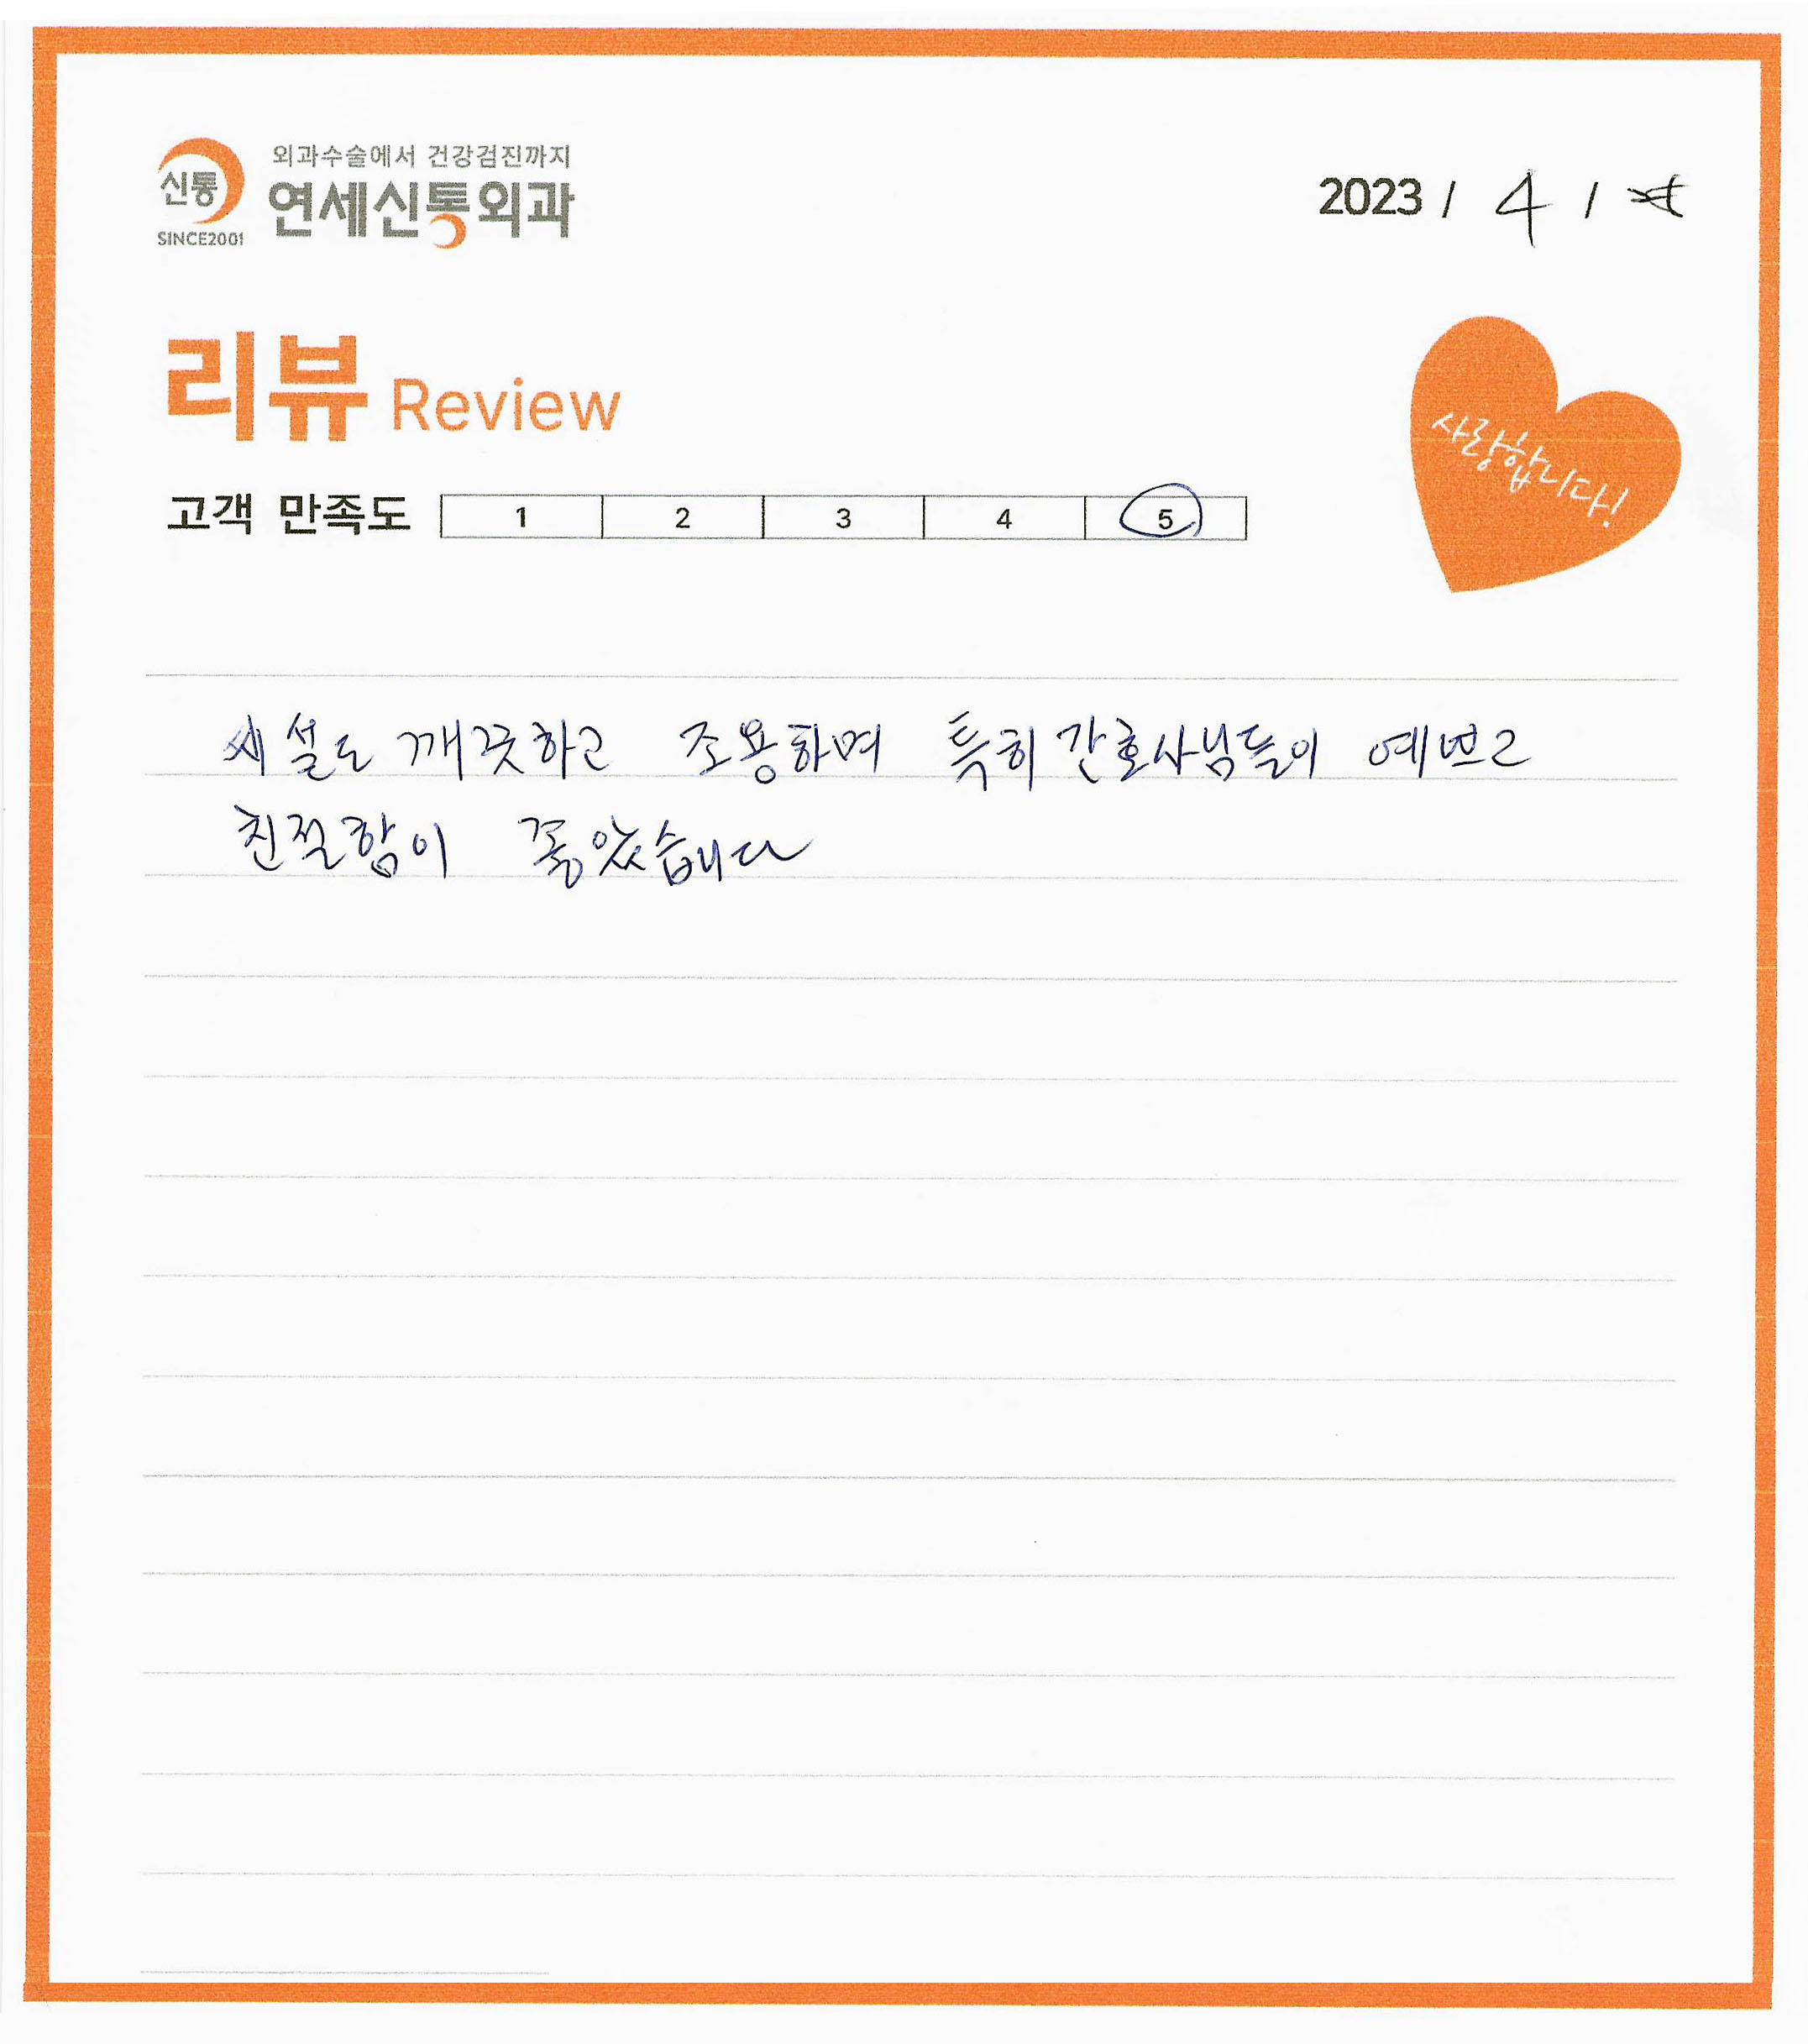 외과수술에서 건강검진까지
신통
연세신통외과
SINCE2001
2023 / 4 /
리뷰 Review
사랑합니다!
고객 만족도 1 2 3 4 5
시설도 깨끗하고 조용하며 특히 간호사님들이 예쁘고
친절함이 좋았습니다